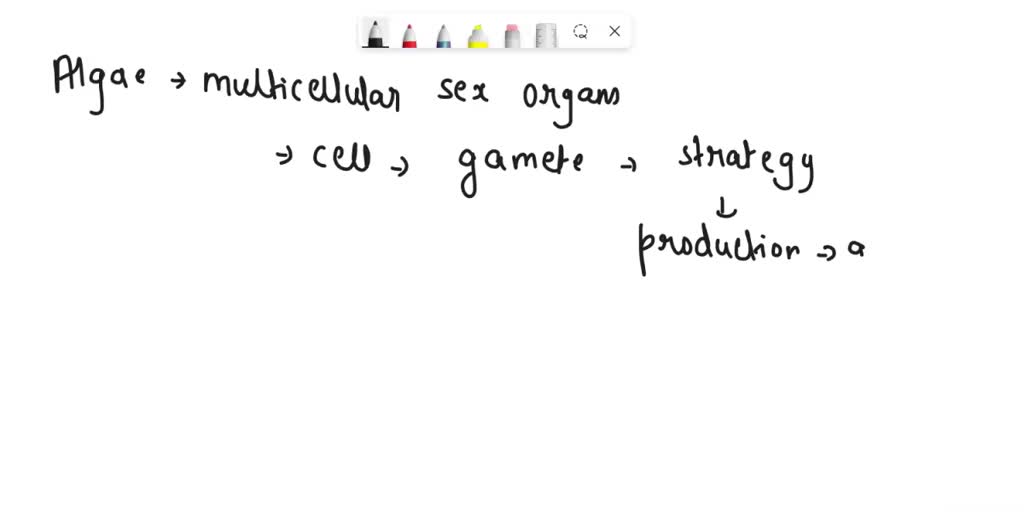 Algae → multicellular sex organs
→ cell → gamete → strategy
↓
production → a